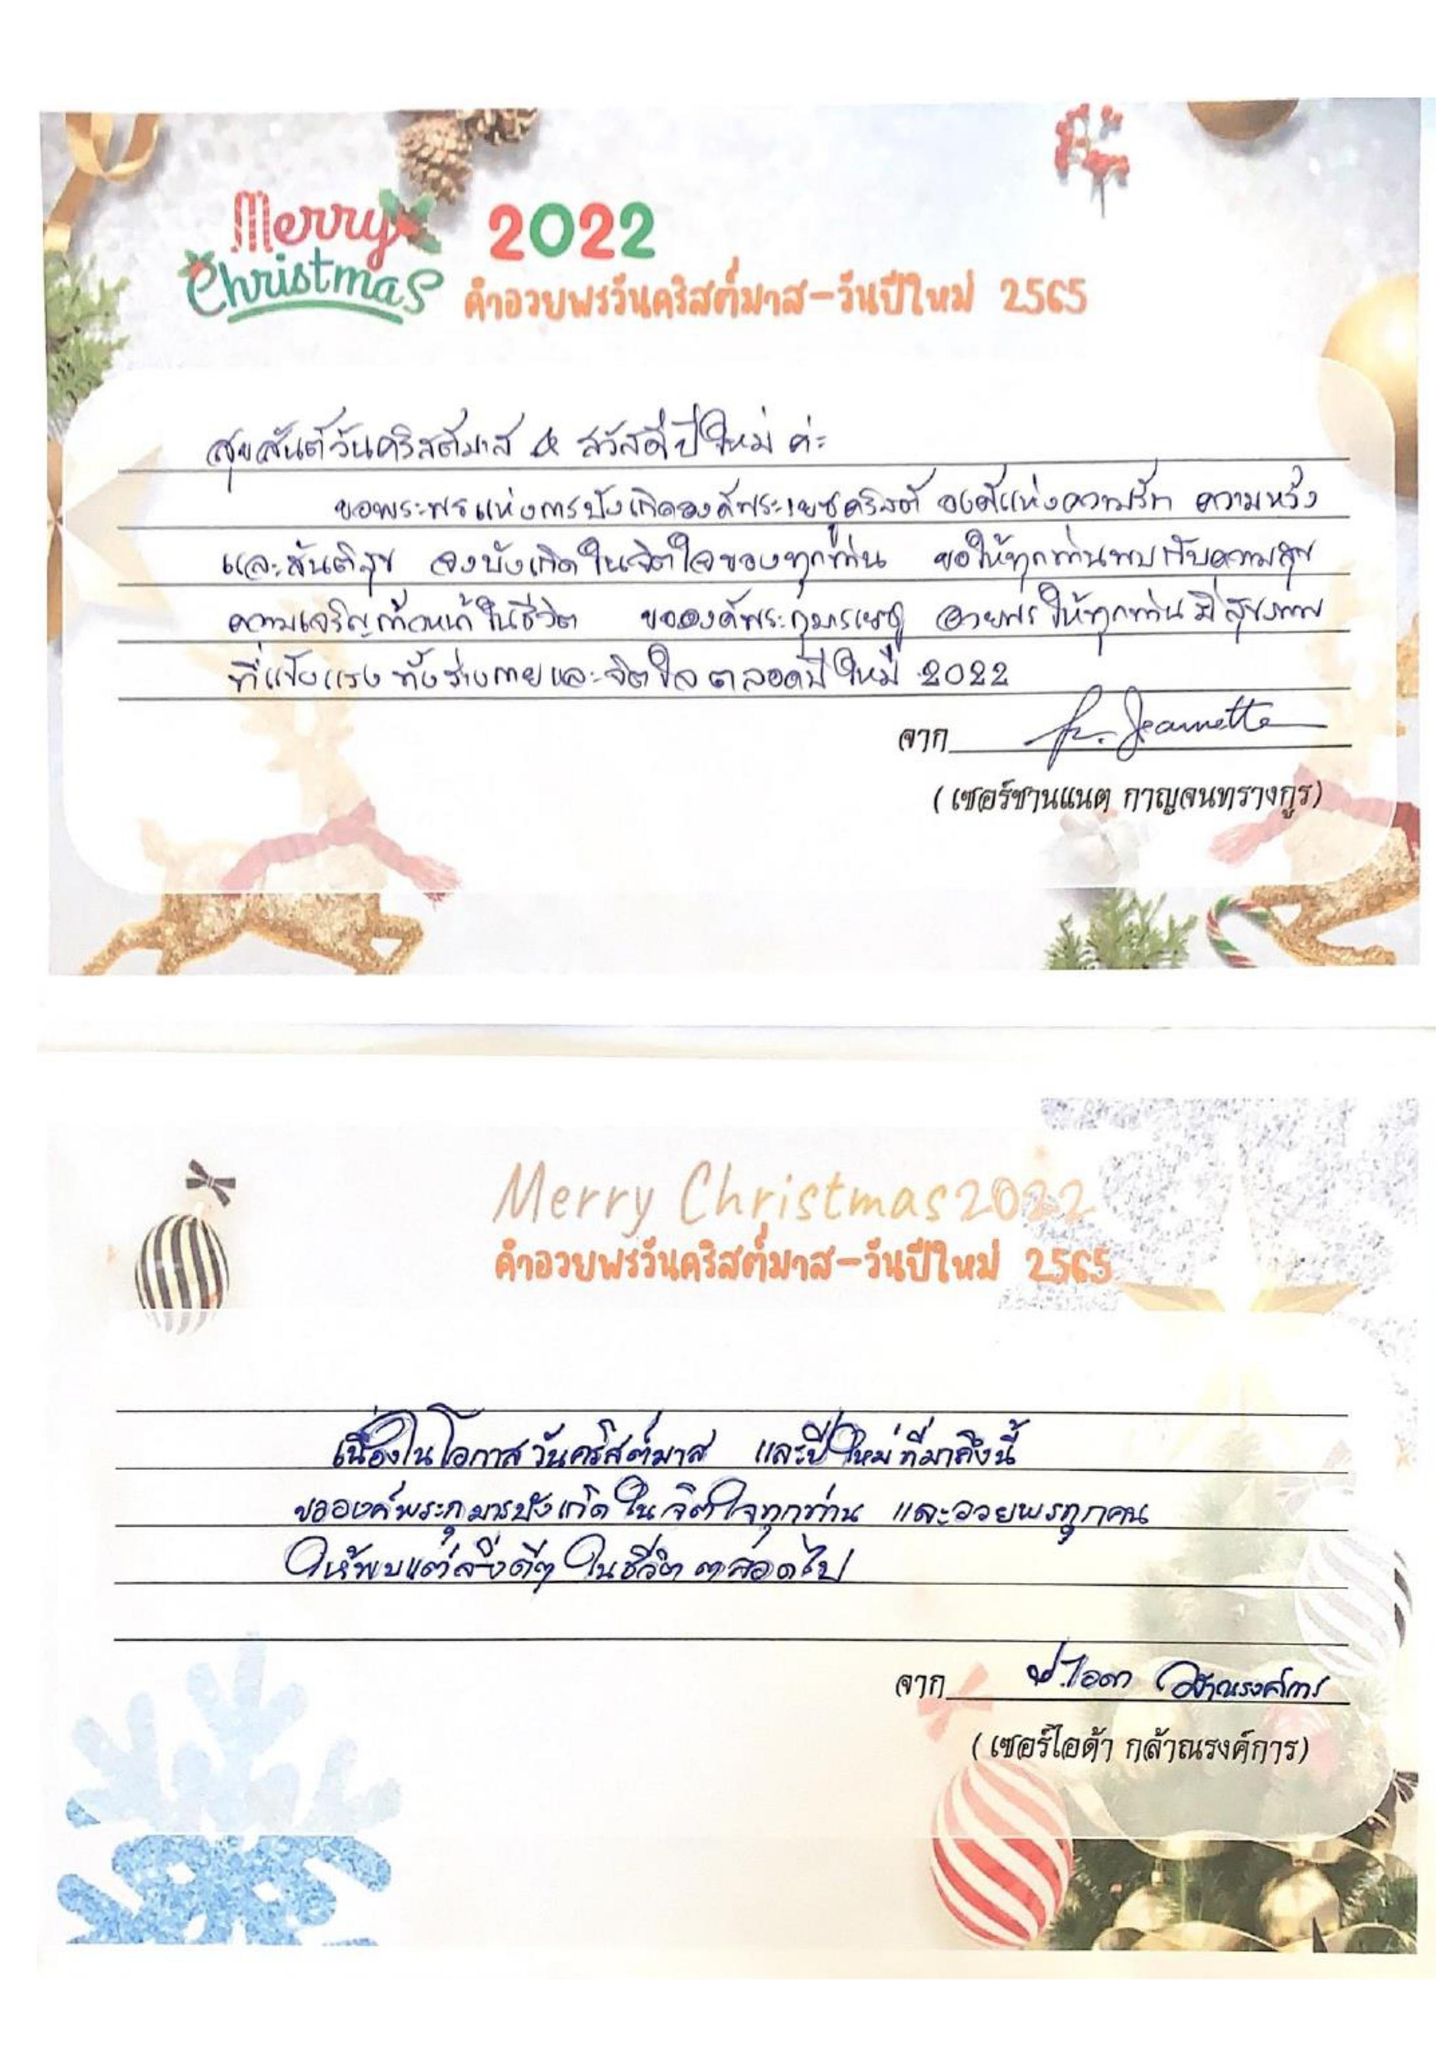 Merry Christmas 2022
คำอวยพรวันคริสต์มาส-วันปีใหม่ 2565
สุขสันต์วันคริสต์มาส & สวัสดีปีใหม่ ค่ะ
ขอพระพรแห่งการบังเกิดองค์พระเยซูคริสต์ องค์แห่งความรัก ความหวัง
และสันติสุข จงบังเกิดในจิตใจของทุกท่าน ขอให้ทุกท่านพบกับความสุข
ความเจริญก้าวหน้าในชีวิต ขอองค์พระกุมารเยซู อวยพรให้ทุกท่านมีสุขภาพ
ที่แข็งแรง ทั้งร่างกายและจิตใจ ตลอดปีใหม่ 2022
จาก Sr. Jeannette
(เซอร์ชานแนต กาญจนทรางกูร)
Merry Christmas 2022
คำอวยพรวันคริสต์มาส-วันปีใหม่ 2565
เนื่องในโอกาสวันคริสต์มาส และปีใหม่ที่มาถึงนี้
ขอองค์พระกุมารบังเกิดในจิตใจทุกท่าน และอวยพรทุกคน
ให้พบแต่สิ่งดีๆ ในชีวิต ตลอดไป
จาก ซ.ไอดา กล้าณรงค์การ
(เซอร์ไอด้า กล้าณรงค์การ)